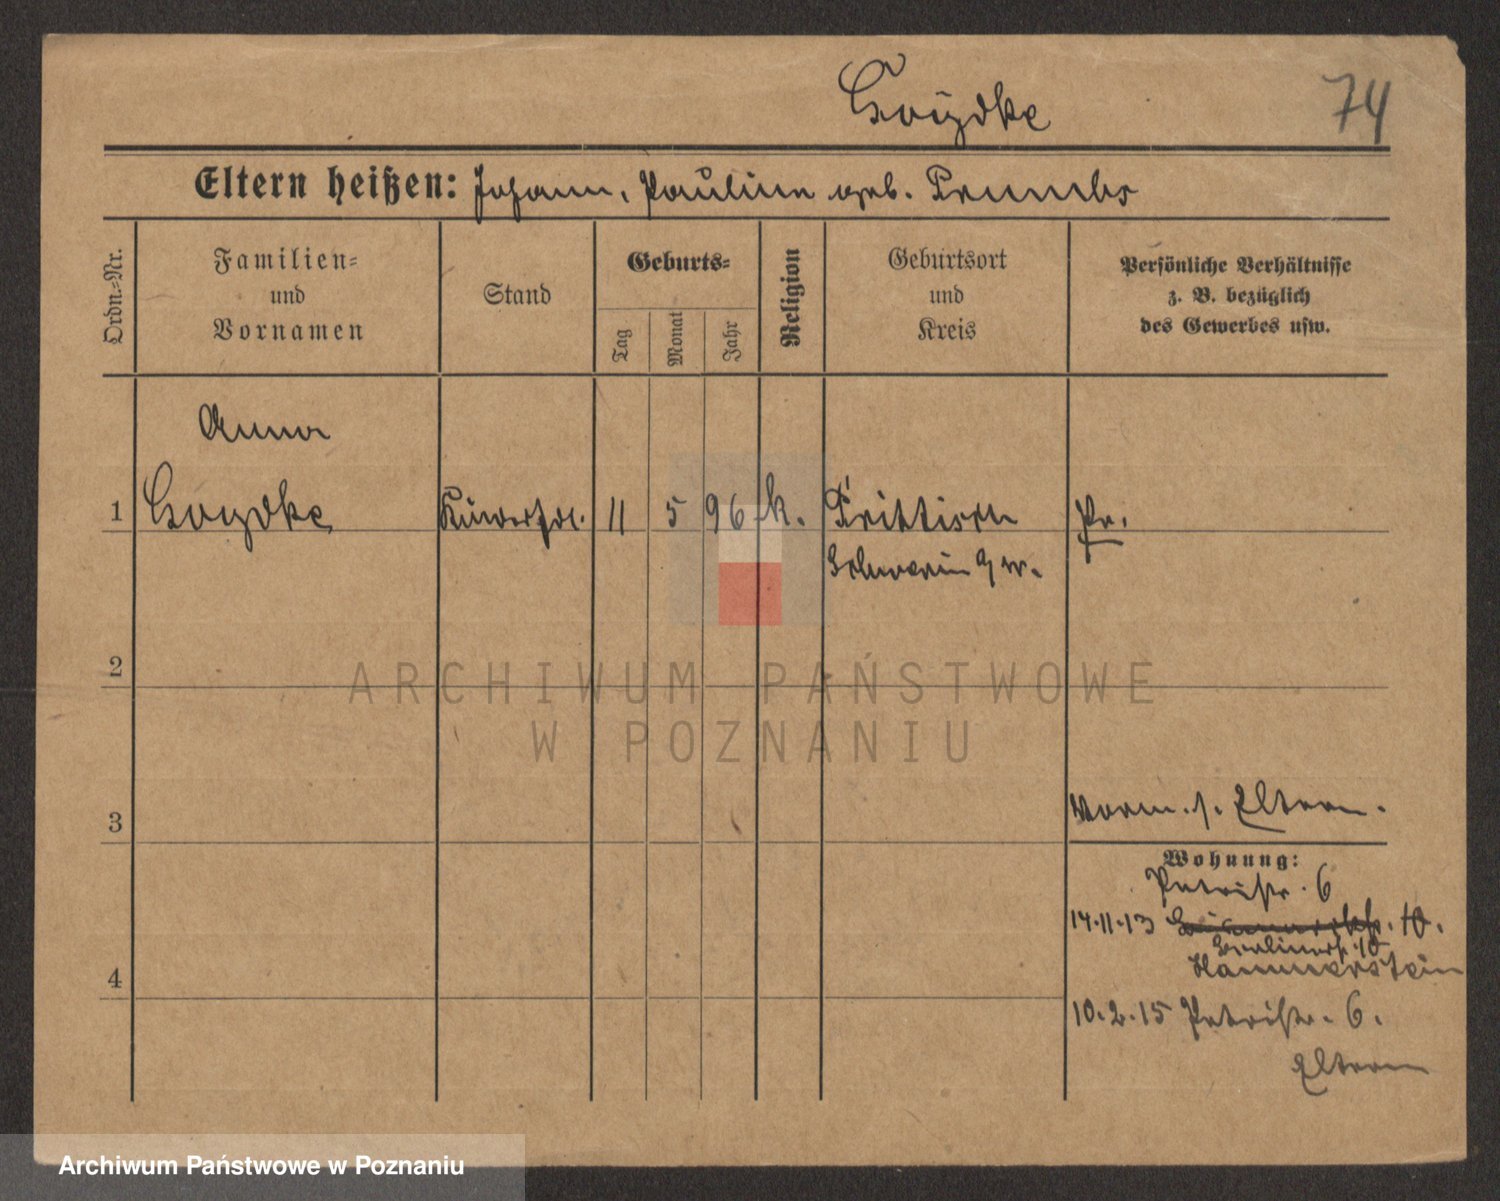 Boydke 74
Eltern heißen: Johann, Pauline geb.
Ordn.-Nr.
Familien-
und
Vornamen
Stand
Geburts-
Tag
Monat
Jahr
Religion
Geburtsort
und
Kreis
Persönliche Verhältnisse
z. B. bezüglich
des Gewerbes usw.
Anna
1 Boydke Kinderfrl. 11 5 96 k. Prittisch Pr.
Schwerin a/W.
2
ARCHIWUM PAŃSTWOWE
W POZNANIU
3 Vorm. s. Eltern.
Wohnung:
Petristr. 6
14.11.13 10.
Berlinerstr. 10
Hammerstein
4
10.2.15 Petristr. 6.
Eltern
Archiwum Państwowe w Poznaniu